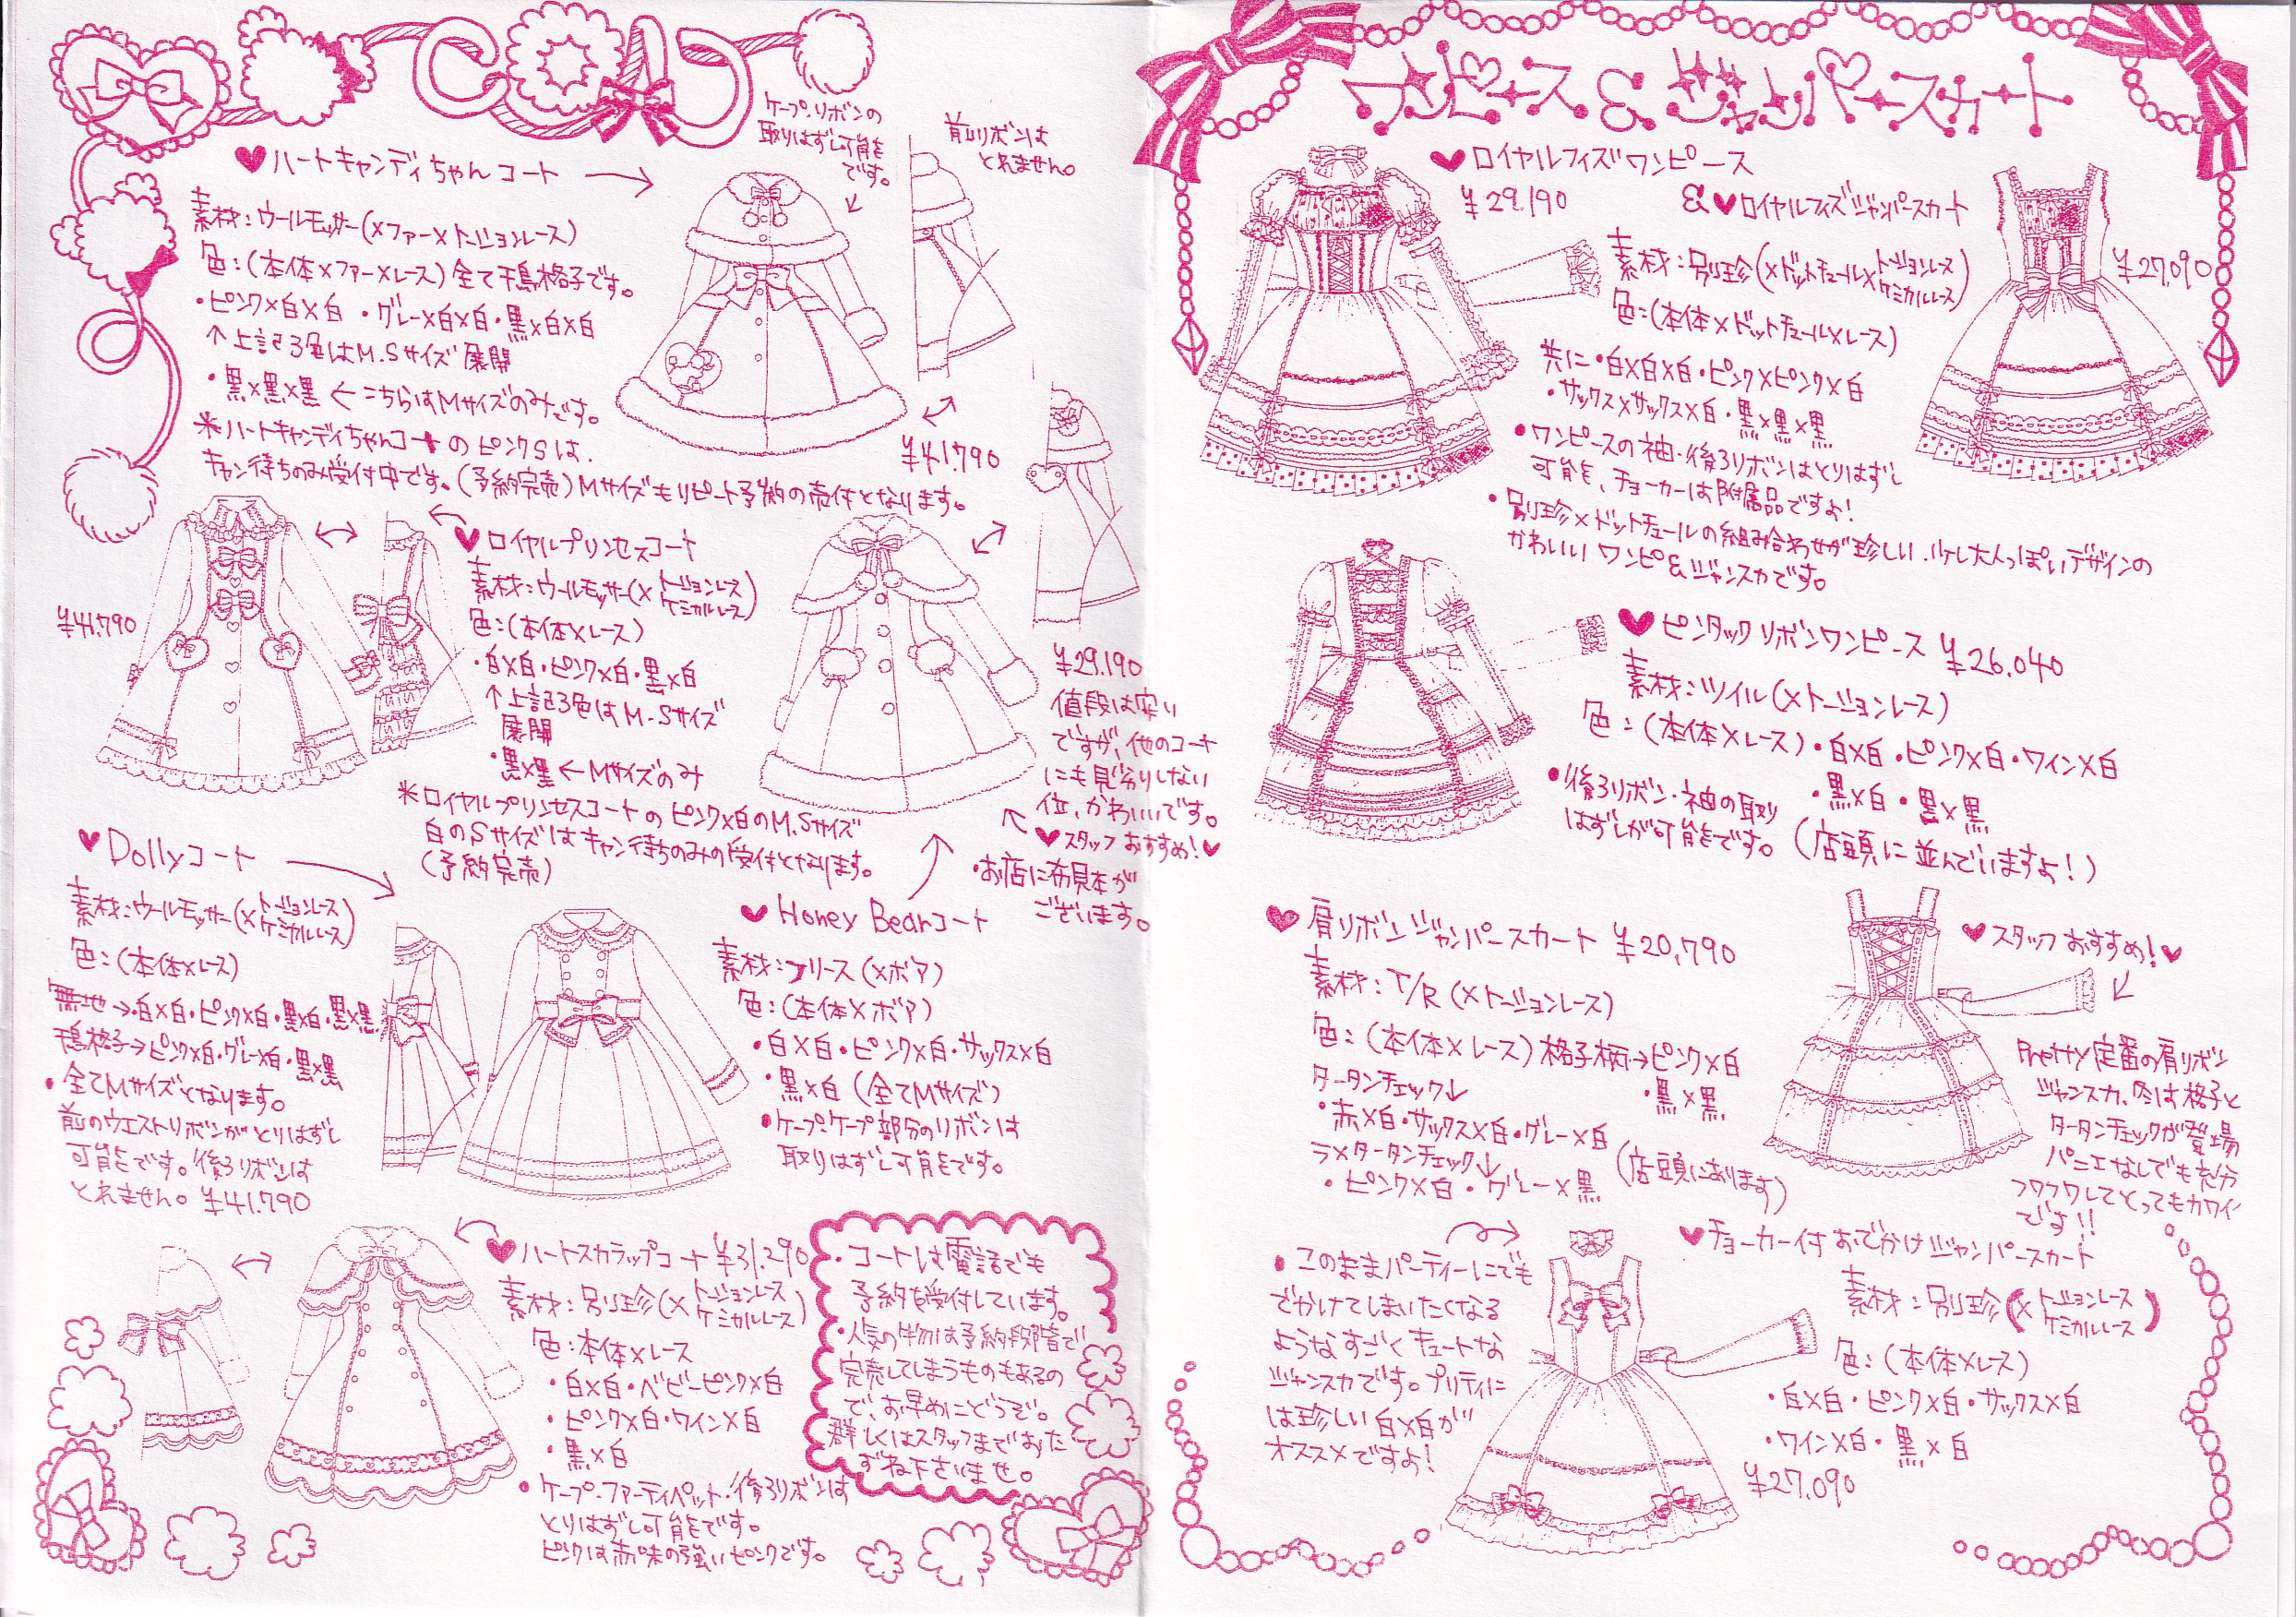 COAT
♥ハートキャンディちゃんコート →
ケープ・リボンの
取りはずし可能
です。
前リボンは
とれません。
素材：ウールモッサー(×ファー×トーションレース)
色：(本体×ファー×レース) 全て千鳥格子です。
・ピンク×白×白 ・グレー×白×白・黒×白×白
↑上記3色はM.Sサイズ展開
・黒×黒×黒 ← こちらはMサイズのみです。
*ハートキャンディちゃんコートのピンクSは.
キャン待ちのみ受付中です。(予約完売)Mサイズもリピート予約の売付となります。
¥41.790
♥ロイヤルプリンセスコート
素材：ウールモッサー(×トーションレース
ケミカルレース)
色：(本体×レース)
・白×白・ピンク×白・黒×白
↑上記3色はM.Sサイズ
展開
・黒×黒 ← Mサイズのみ
¥41.790
*ロイヤルプリンセスコートのピンク×白のM.Sサイズ
白のSサイズはキャン待ちのみの受付となります。
(予約完売)
¥29.190
値段は安い
ですが、他のコート
にも見劣りしない
位、かわいいです。
♥スタッフおすすめ!♥
・お店に布見本が
ございます。
♥Dollyコート
素材：ウールモッサー(×トーションレース
ケミカルレース)
色：(本体×レース)
無地→・白×白・ピンク×白・黒×白・黒×黒
千鳥格子→ピンク×白・グレー×白・黒×黒
・全てMサイズとなります。
前のウエストリボンがとりはずし
可能です。後ろリボンは
とれません。¥41.790
♥Honey Bearコート
素材：フリース(×ボア)
色：(本体×ボア)
・白×白・ピンク×白・サックス×白
・黒×白(全てMサイズ)
・ケープ・ケープ部分のリボンは
取りはずし可能です。
♥ハートスカラップコート ¥31.290
素材：別珍(×トーションレース
ケミカルレース)
色：本体×レース
・白×白・ベビーピンク×白
・ピンク×白・ワイン×白
・黒×白
・ケープ・ファーティペット・後ろリボンは
とりはずし可能です。
ピンクは赤味の強いピンクです。
・コートは電話でも
予約を受付しています。
・人気の物は予約段階で
完売してしまうものもあるの
で、お早めにどうぞ。
詳しくはスタッフまでおた
ずね下さいませ。
ワンピース&ジャンパースカート
♥ロイヤルフィズワンピース
¥29.190
&♥ロイヤルフィズジャンパースカート
¥27.090
素材：別珍(×ドットチュール×トーションレース
ケミカルレース)
色：(本体×ドットチュール×レース)
共に・白×白×白・ピンク×ピンク×白
・サックス×サックス×白・黒×黒×黒
・ワンピースの袖・後ろリボンはとりはずし
可能、チョーカーは附属品ですよ!
・別珍×ドットチュールの組み合わせが珍しい、少し大人っぽいデザインの
かわいいワンピ&ジャンスカです。
♥ピンタックリボンワンピース ¥26.040
素材：ツイル(×トーションレース)
色：(本体×レース)・白×白・ピンク×白・ワイン×白
・黒×白・黒×黒
・後ろリボン・袖の取り
はずしが可能です。(店頭に並んでいますよ!)
♥肩リボンジャンパースカート ¥20,790
素材：T/R(×トーションレース)
色：(本体×レース)格子柄→ピンク×白
・黒×黒
タータンチェック↓
・赤×白・サックス×白・グレー×白
ラメタータンチェック↓
・ピンク×白・グレー×黒
(店頭にあります)
♥スタッフおすすめ!♥
Pretty定番の肩リボン
ジャンスカ、今は格子と
タータンチェックが登場
パニエなしでも充分
フワフワしてとってもカワイイ
です!!
♥チョーカー付おでかけジャンパースカート
素材：別珍(×トーションレース
ケミカルレース)
色：(本体×レース)
・白×白・ピンク×白・サックス×白
・ワイン×白・黒×白
¥27.090
・このままパーティーにでも
でかけてしまいたくなる
ようなすごくキュートな
ジャンスカです。プリティに
は珍しい白×白が
オススメですよ!